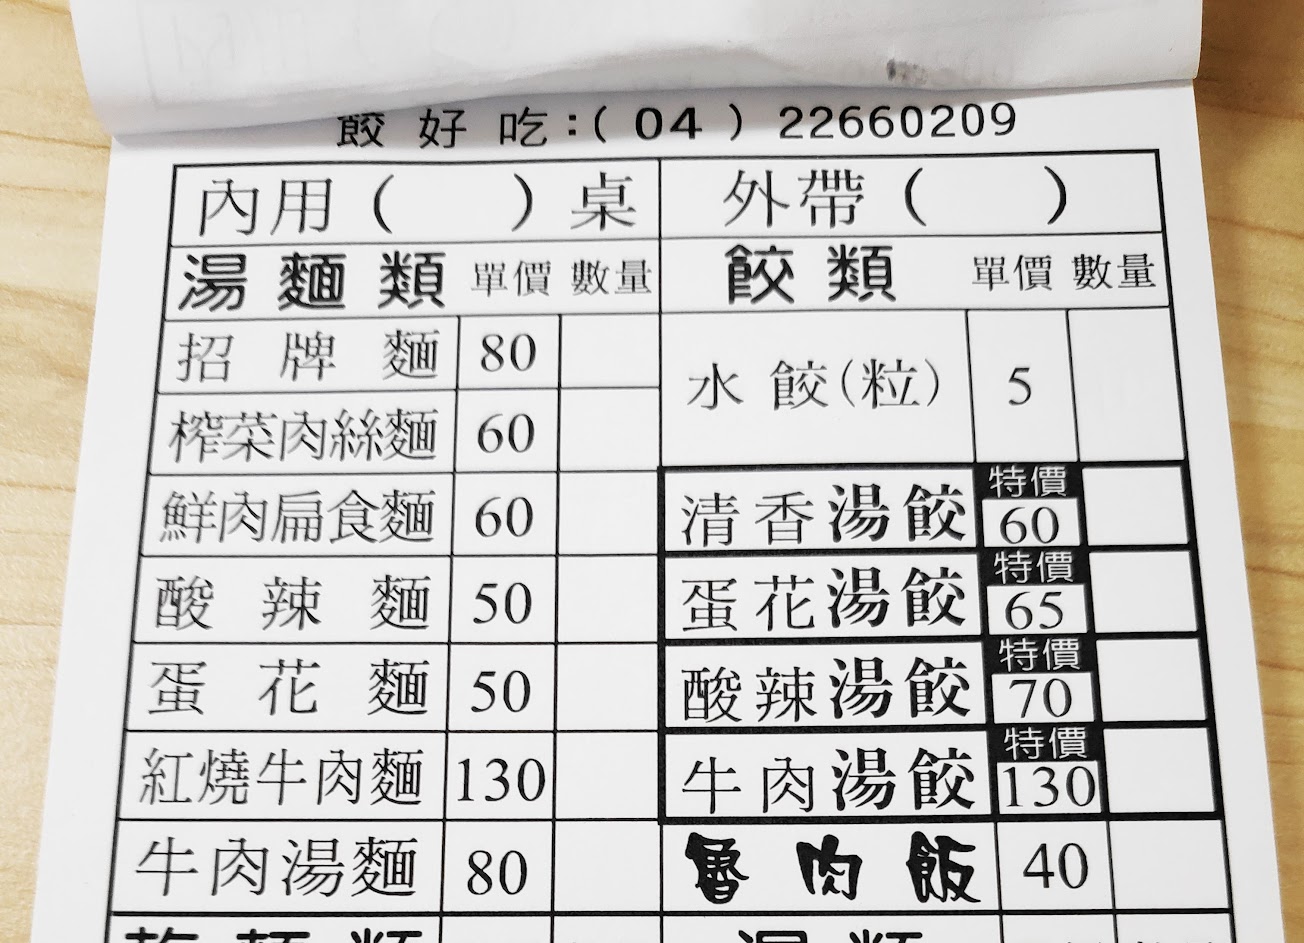 餃好吃:(04)22660209
內用( )桌 外帶( )
湯麵類 單價 數量 餃類 單價 數量
招牌麵 80
水餃(粒) 5
榨菜肉絲麵 60
鮮肉扁食麵 60 清香湯餃 特價 60
酸辣麵 50 蛋花湯餃 特價 65
蛋花麵 50 酸辣湯餃 特價 70
紅燒牛肉麵 130 牛肉湯餃 特價 130
牛肉湯麵 80 魯肉飯 40
乾麵類 湯類